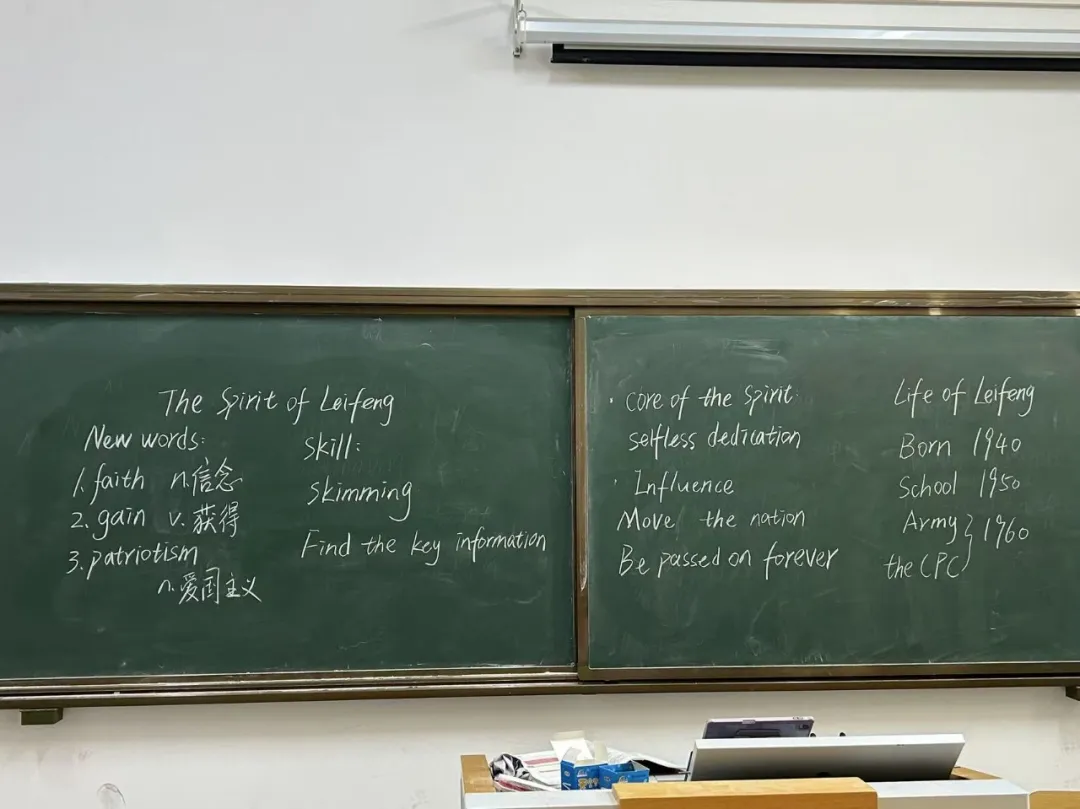 The Spirit of Leifeng
New words:
1. faith n. 信念
2. gain v. 获得
3. patriotism
n. 爱国主义
Skill:
Skimming
Find the key information
· Core of the Spirit:
selfless dedication
· Influence
Move the nation
Be passed on forever
Life of Leifeng
Born 1940
School 1950
Army } 1960
the CPC